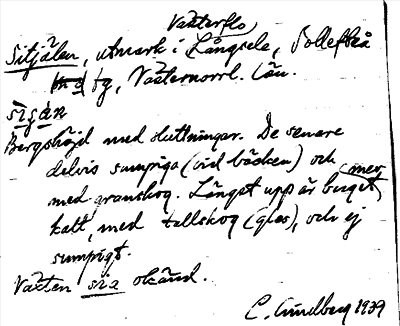 Västerflo
Sitjälen, utmark i Långsele, Sollefteå
tg, Västernorrl. län.
sìgän
Bergshöjd med sluttningar. De senare
delvis sumpiga (vid bäcken) och
med granskog. Längst upp är berget mer
kalt, med tallskog (gles), och ej
sumpigt.
Växten sia okänd.
C. Lundberg 1939